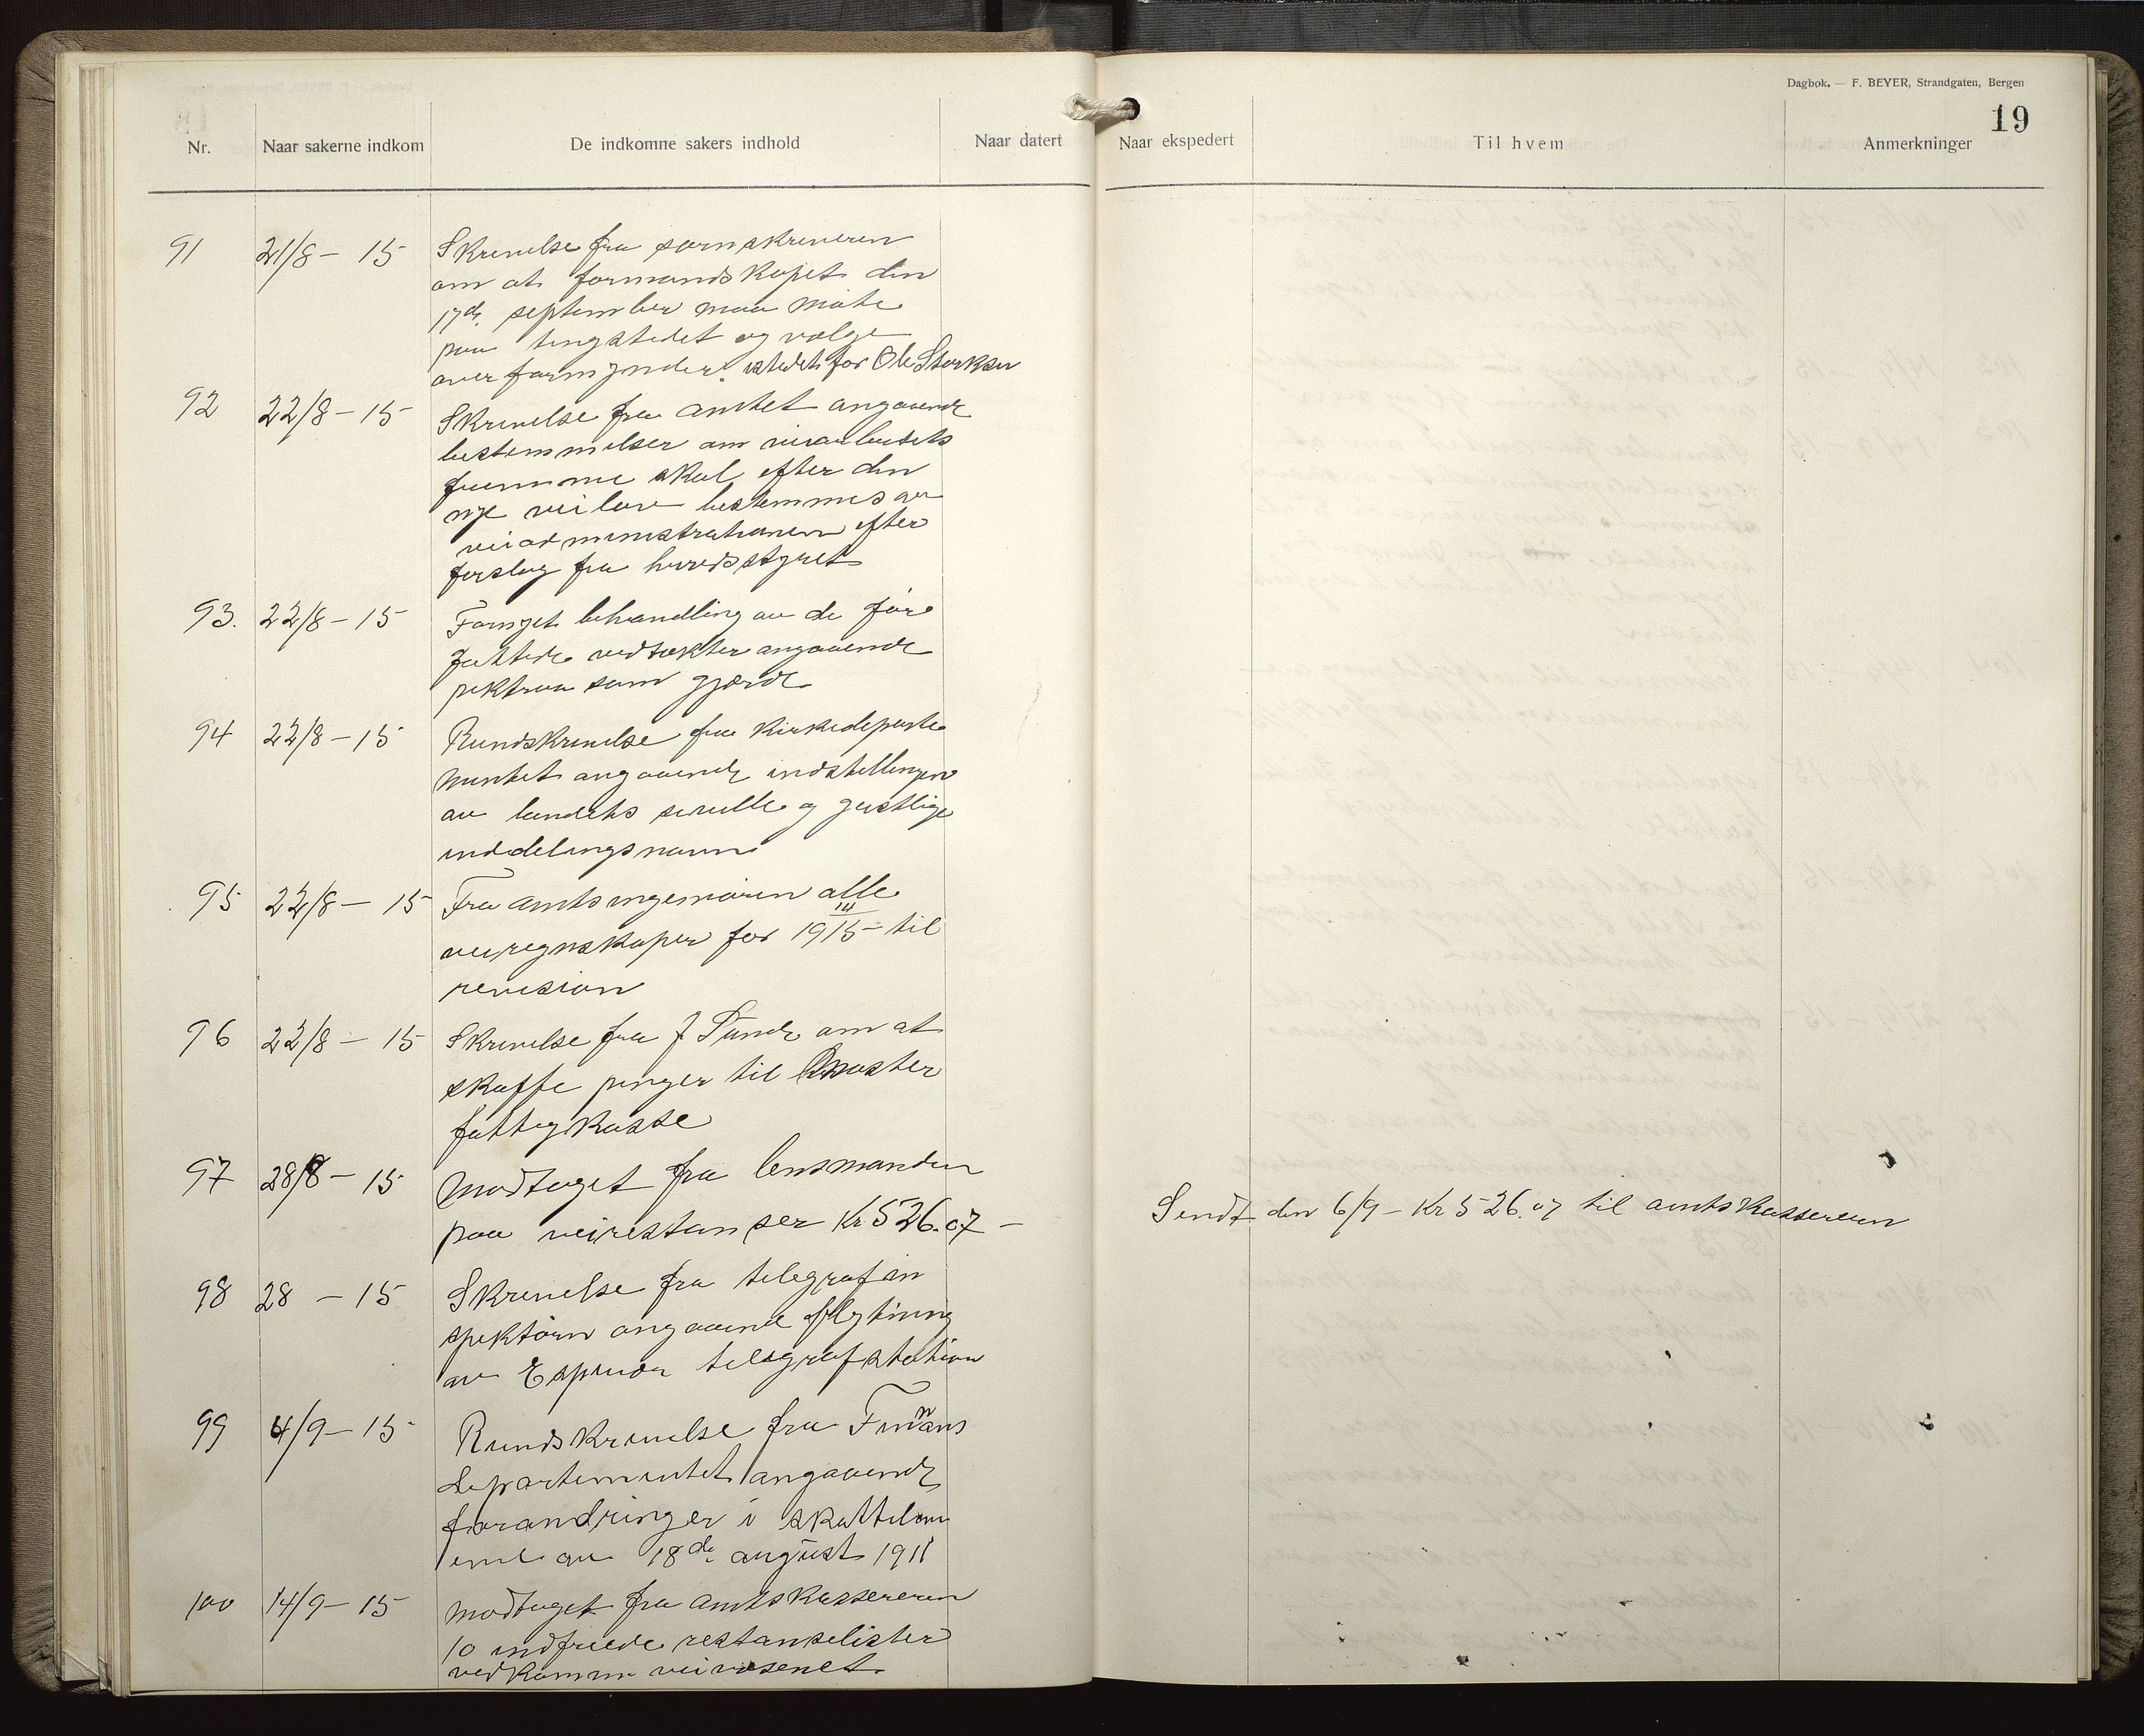 Dagbok. — F. BEYER, Strandgaten, Bergen
19
Nr. Naar sakerne indkom De indkomne sakers indhold Naar datert Naar ekspedert Til hvem Anmerkninger
91 21/8 – 15 Skrivelse fra sorenskriveren
om at formandskapet den
17de september maa møte
paa tingstedet og vælge
overformynder istedetfor Ole Storksen
92 22/8 – 15 Skrivelse fra amtet angaaende
bestemmelser om veiarbeidets
fremme skal efter den
nye veilov bestemmes av
veiadministrationen efter
forslag fra herredsstyret
93. 22/8 – 15 Fornyet behandling av de før
fattede vedtækter angaaende
pigtraa som gjærde
94 22/8 – 15 Rundskrivelse fra Kirkedeparte
mentet angaaende indstillingen
av landets siville og geistlige
inddelingsnavn
95 22/8 – 15 Fra amtsingeniøren alle
veiregnskaper for 19 14/15 – til
revision
96 22/8 – 15 Skrivelse fra J Sunde om at
skaffe penger til
fattigkasse
97 28/8 – 15 Modtaget fra lensmanden
paa veirestanser Kr 526.07 –
Sendt den 6/9 – Kr 526.07 til amtskassereren
98 28 – 15 Skrivelse fra telegrafin
spektørn angaaende flytning
av telegrafstation
99 4/9 – 15 Rundskrivelse fra Finans
departementet angaaende
forandringer i skatteloven
av 18de august 1911
100 14/9 – 15 Modtaget fra amtskassereren
10 indfriede restanselister
vedkomm veivæsenet.